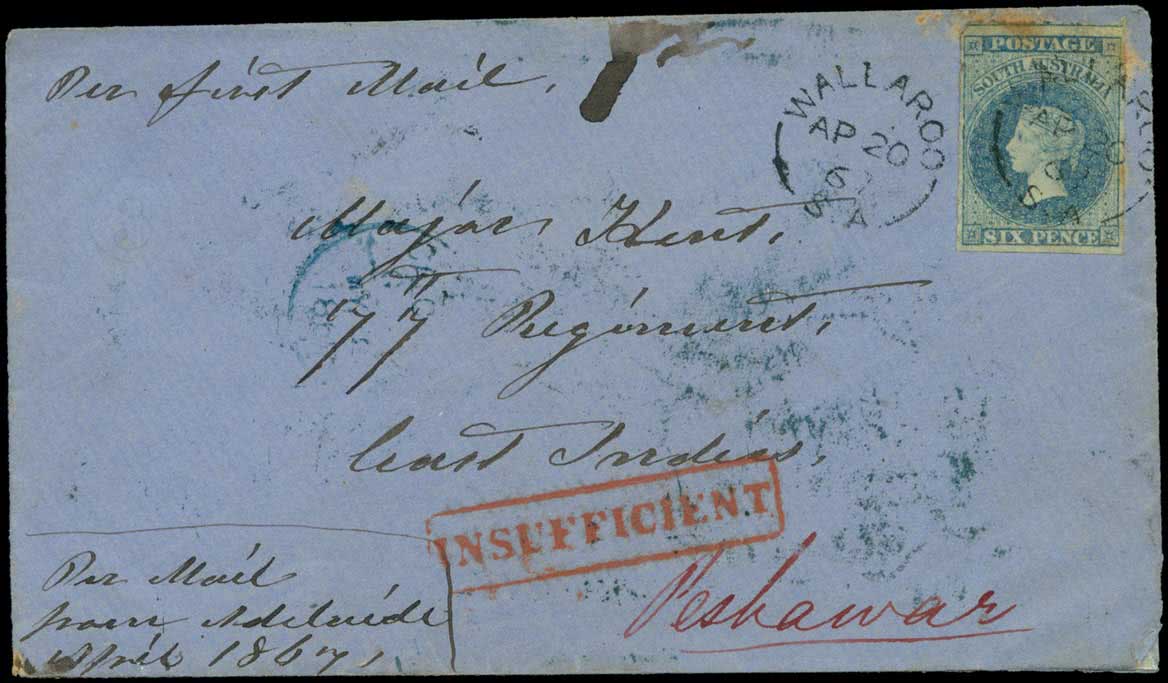 Per first Mail.
WALLAROO
AP 20
6
S A
POSTAGE
SOUTH AUSTRALIA
AP 20
S A
SIX PENCE
Major Kent.
77 Regiment.
East Indies.
INSUFFICIENT
Peshawar
Per Mail
from Adelaide
April 1867,